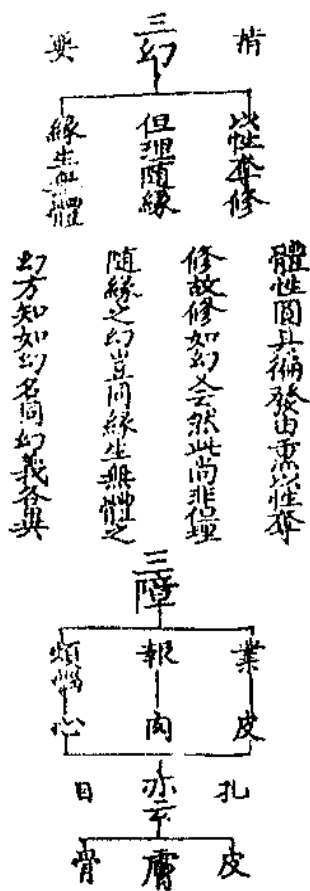 指要
三幻
以性奪修
但理隨緣
緣生無體
體性圓具徧發由熏以性奪
修故修如幻又云然此尚非但理
隨緣之幻豈同緣生無體之
幻方知如幻名同幻義各異
三障
業皮
報肉
煩惱心
孔目
亦云
皮
膚
骨